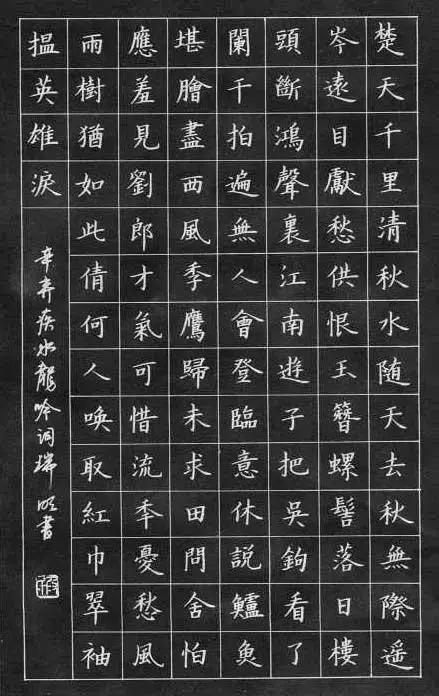 楚天千里清秋水随天去秋無際遥
岑遠目獻愁供恨玉簪螺髻落日樓
頭斷鴻聲裏江南遊子把吳鉤看了
闌干拍遍無人會登臨意休説鱸魚
堪膾盡西風季鷹歸未求田問舍怕
應羞見劉郎才氣可惜流秊憂愁風
雨樹猶如此倩何人喚取紅巾翠袖
揾英雄淚
辛弃疾水龍吟词瑞明書